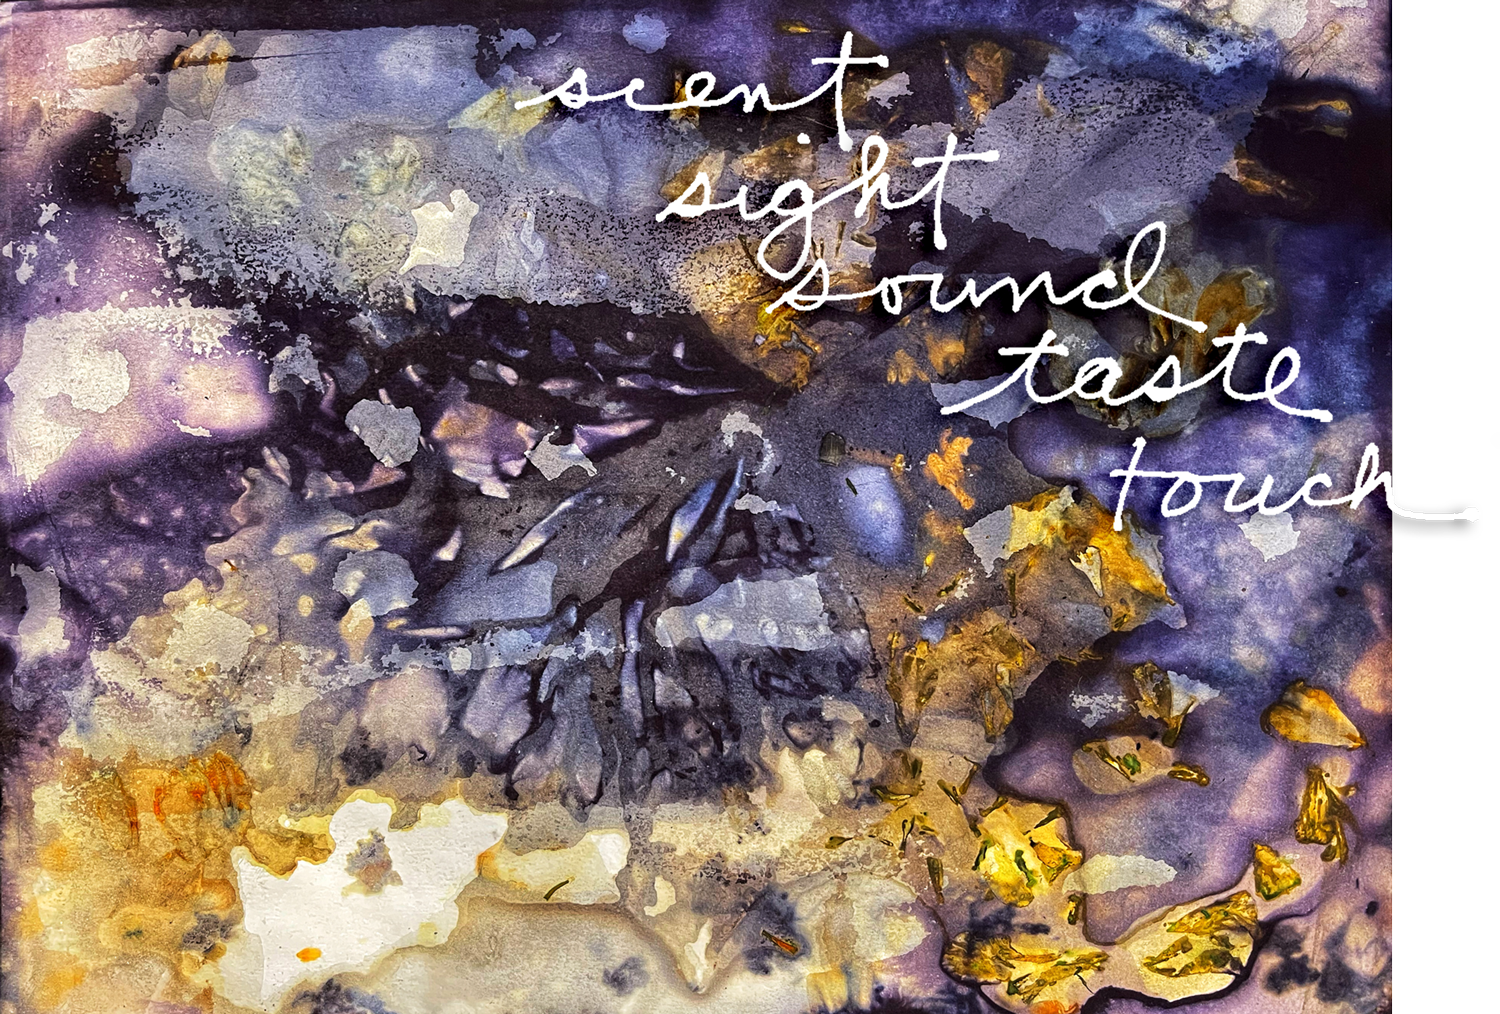 scent
sight
sound
taste
touch